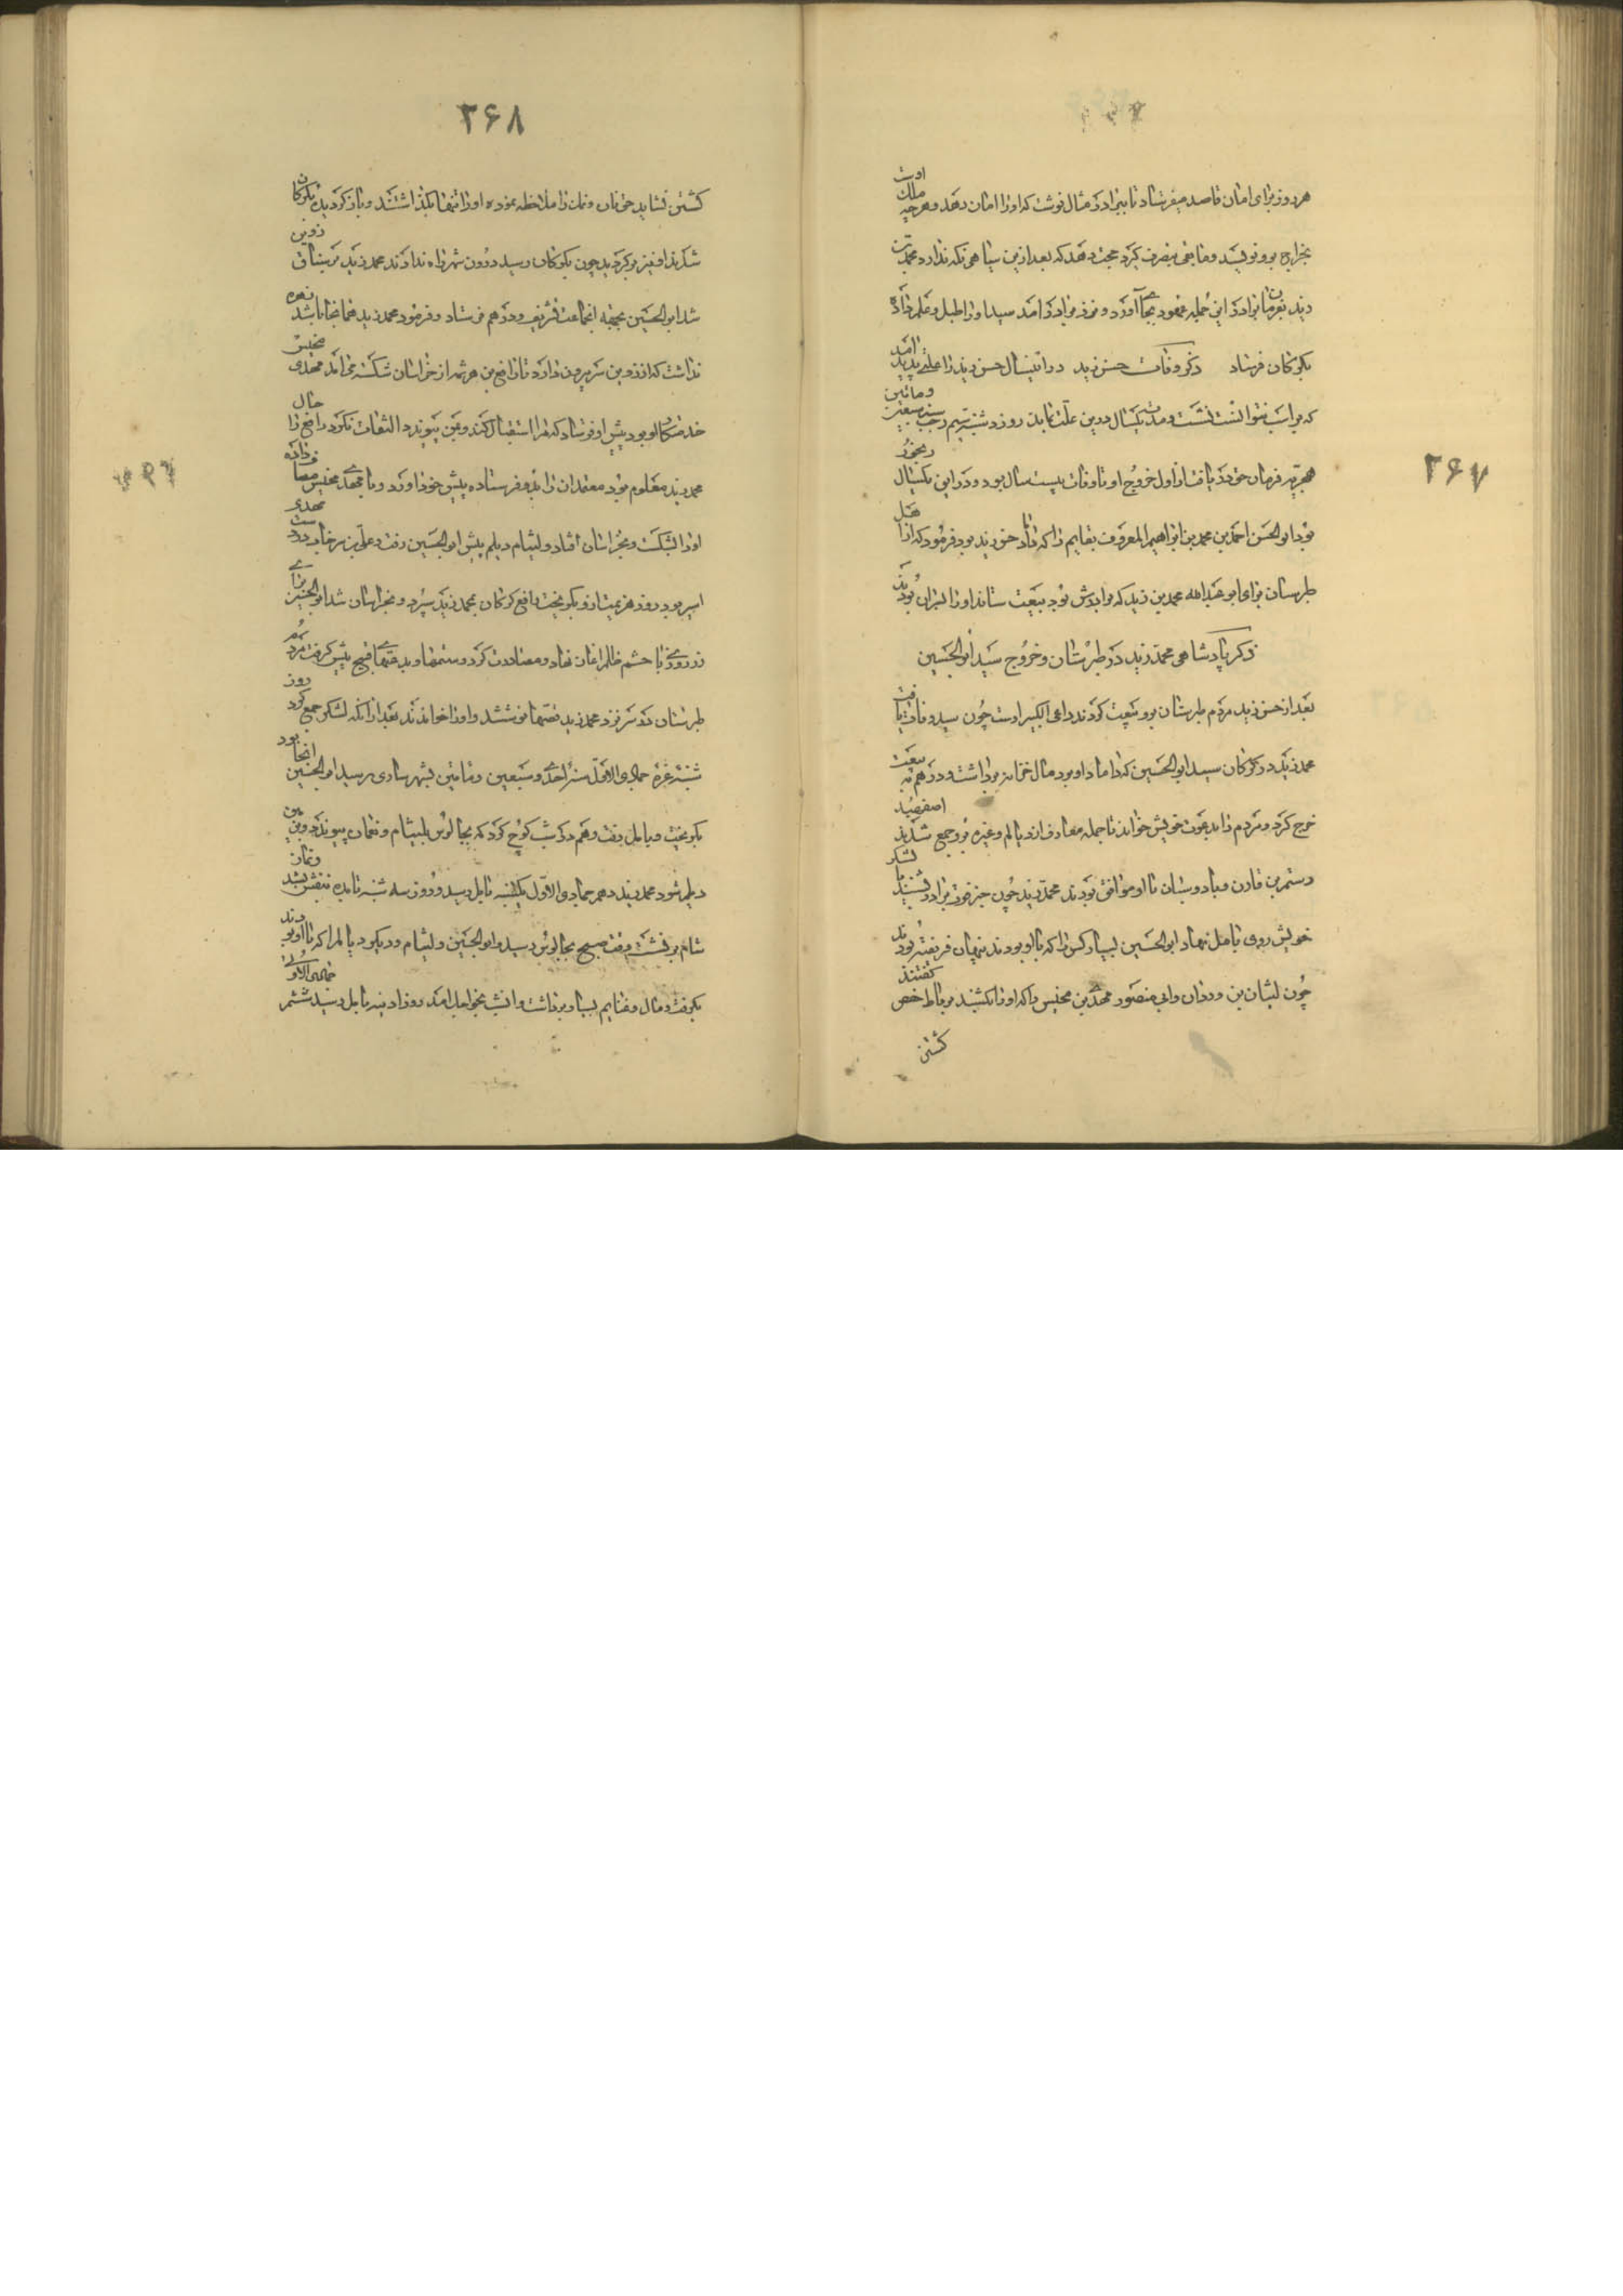 ۲۶۷
هر روز برای امان قاصد میفرستاد تا ببرادر مثال نوشت که او را امان دهد و هرچه ملک اوست
بخراج برو نویسد و مابقی بتصرف گیرد حجت دهد که بعد ازین سپاهی نگه ندارد محمد بن
زید بفرمان برادر این جمله عهود بجای آورد و نزد برادر آمد سید او را طبل و علم داد
بگرگان فرستاد ذکر وفات حسن زید در آن سال حسن زید را علتی پدید آمد
که بر اسب نتوانست نشست و مدت یکسال درین علت بماند روز دوشنبه سیم رجب سنه سبعین و ماتین
هجریه فرمان حق در یافت از اول خروج او تا وفات بیست سال بود و درین یکسال رنجور
بود ابو الحسن احمد بن محمد بن ابراهیم المعروف بقایم را که داماد حسن زید بود فرمود که از اهل
طبرستان برای ابو عبدالله محمد بن زید که برادرش بود بیعت ستاند او را
ذکر پادشاهی محمد زید در طبرستان و خروج سید ابو الحسین
بعد از حسن زید مردم طبرستان برو بیعت کردند داعی الکبیر اوست چون سید وفات یافت
محمد زید در گرگان سید ابو الحسین که داماد او بود مال خزاین برداشت و درهم به بیعت
خرج کرد و مردم را بدعوت خویش خواند تا جمله معارف از دیالم و غیره برو جمع شدند اصفهبد
رستم بن قارن و بادوسبان با او موافق بودند محمد زید چون خبر فوت برادر بشنید با لشکر
خویش روی بآمل نهاد ابو الحسین بسیار کس را که با او بودند بنهان فریفته بودند
چون لیشان بن وردان و ابی منصور مهدی بن محیس را که او را بکشند بر بالا حصن گفتند
کشتن
۲۶۸
کشتن نشاید حق نان و نمک را ملاحظه نموده او را تنها بگذاشتند و باز گردیدند بگرگان
شدند او نیز برگردید چون بگرگان رسید درون شهر راه ندادند محمد زید
شد ابو الحسین بجهة آنجماعت تشریف و درهم فرستاد و فرمود محمد زید همانجا باشد
نداشت که از قزوین سر بیرون دارد تا رافع بن هرثمه از خراسان شکسته می آمد مهدی محیس
خدمتکار او بود پیش او فرستاد که مرا استقبال کند و بمن پیوندد التفات نکرد رافع را حال
محمد زید معلوم بود معتمدان را بدو فرستاده پیش خود آورد و با مهدی محیس مصاف داده
او را بشکست و بخراسان افتاد و لیشام دیلم پیش ابو الحسین رفت و علی بن سرخاب
اسیر بود روز هزیمت ازو بگریخت رافع گرگان بمحمد زید سپرد و بخراسان شد ابو الحسین
زرد روی با حشم ظلم آغاز نهاد و مصادرت کرد و ستمها و بدعتهای قبیح پیش گرفت مردم
طبرستان در سر نزد محمد زید قصها نوشتند و او را خواندند بعد از آنکه لشکر جمع کرد روز
شنبه غره جمادی الاول سنه احدی و سبعین و ماتین بشهر ساری رسید ابو الحسین آنجا بود
بگریخت و بآمل رفت و هم در شب کوچ کرد که بچالوس بلیشام و نعمان پیوندد و
دیلم شود محمد زید دهم جمادی الاول یکشنبه بآمل رسید و روز سه شنبه
شام بر نشست وقت صبح بچالوس رسید و ابو الحسین و لیشام و دیگر دیالم را که با او بودند
بگرفت و مال و غنایم بسیار برداشت و آنشب بخواجک آمد روز آدینه بآمل رسید ششم جمادی الاولی